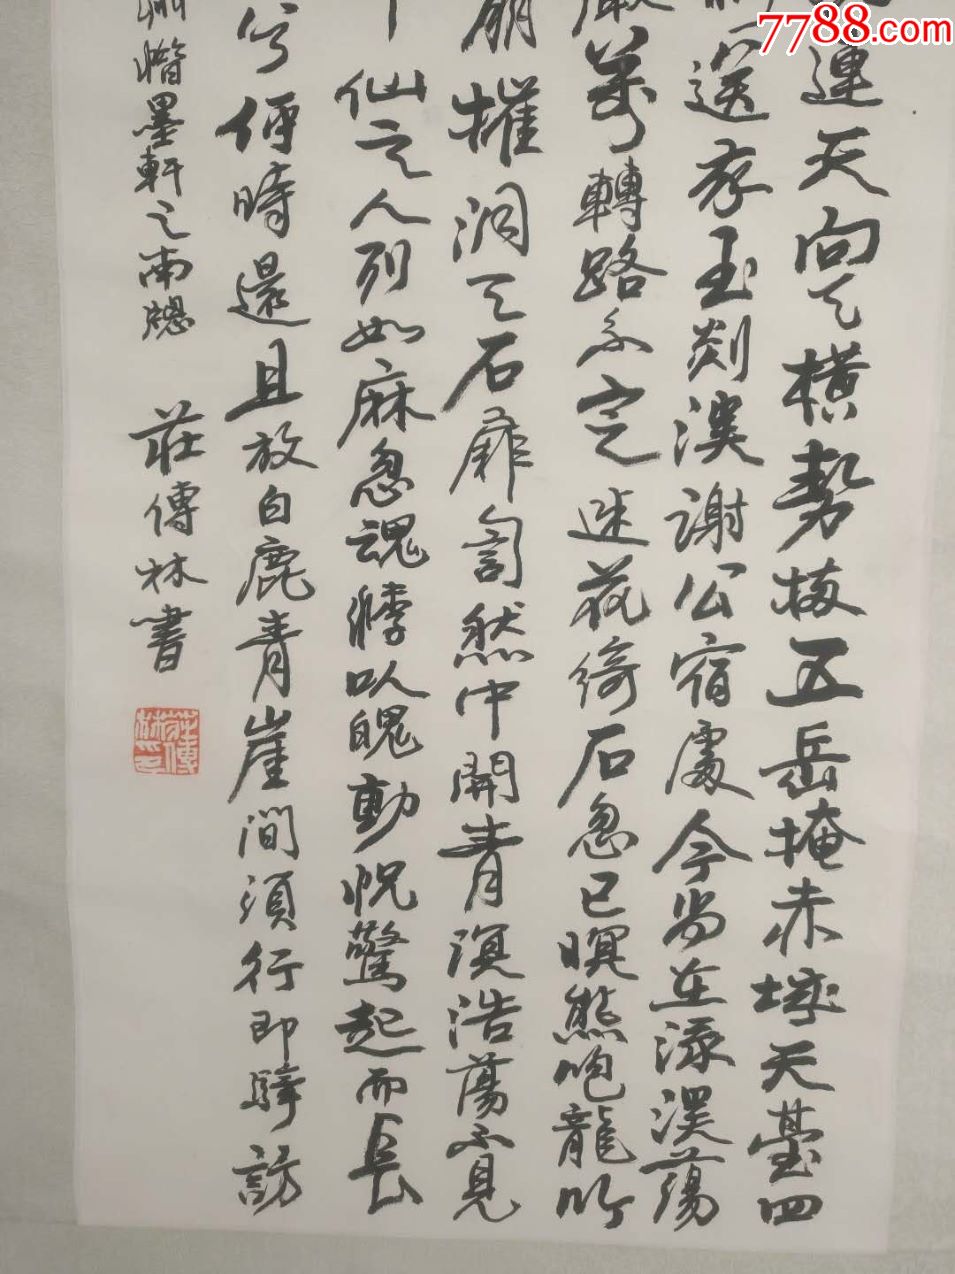 7788.com
連天向天橫勢拔五岳掩赤城天臺四
送我至剡溪謝公宿處今尚在淥蕩
巖萬轉路不定迷花倚石忽已暝熊咆龍吟
崩摧洞天石扉訇然中開青溟浩蕩不見
仙之人列如麻忽魂悸以魄動怳驚起而長
兮何時還且放白鹿青崖間須行即騎訪
惜墨軒之南窻 莊傳林書
莊傳林印